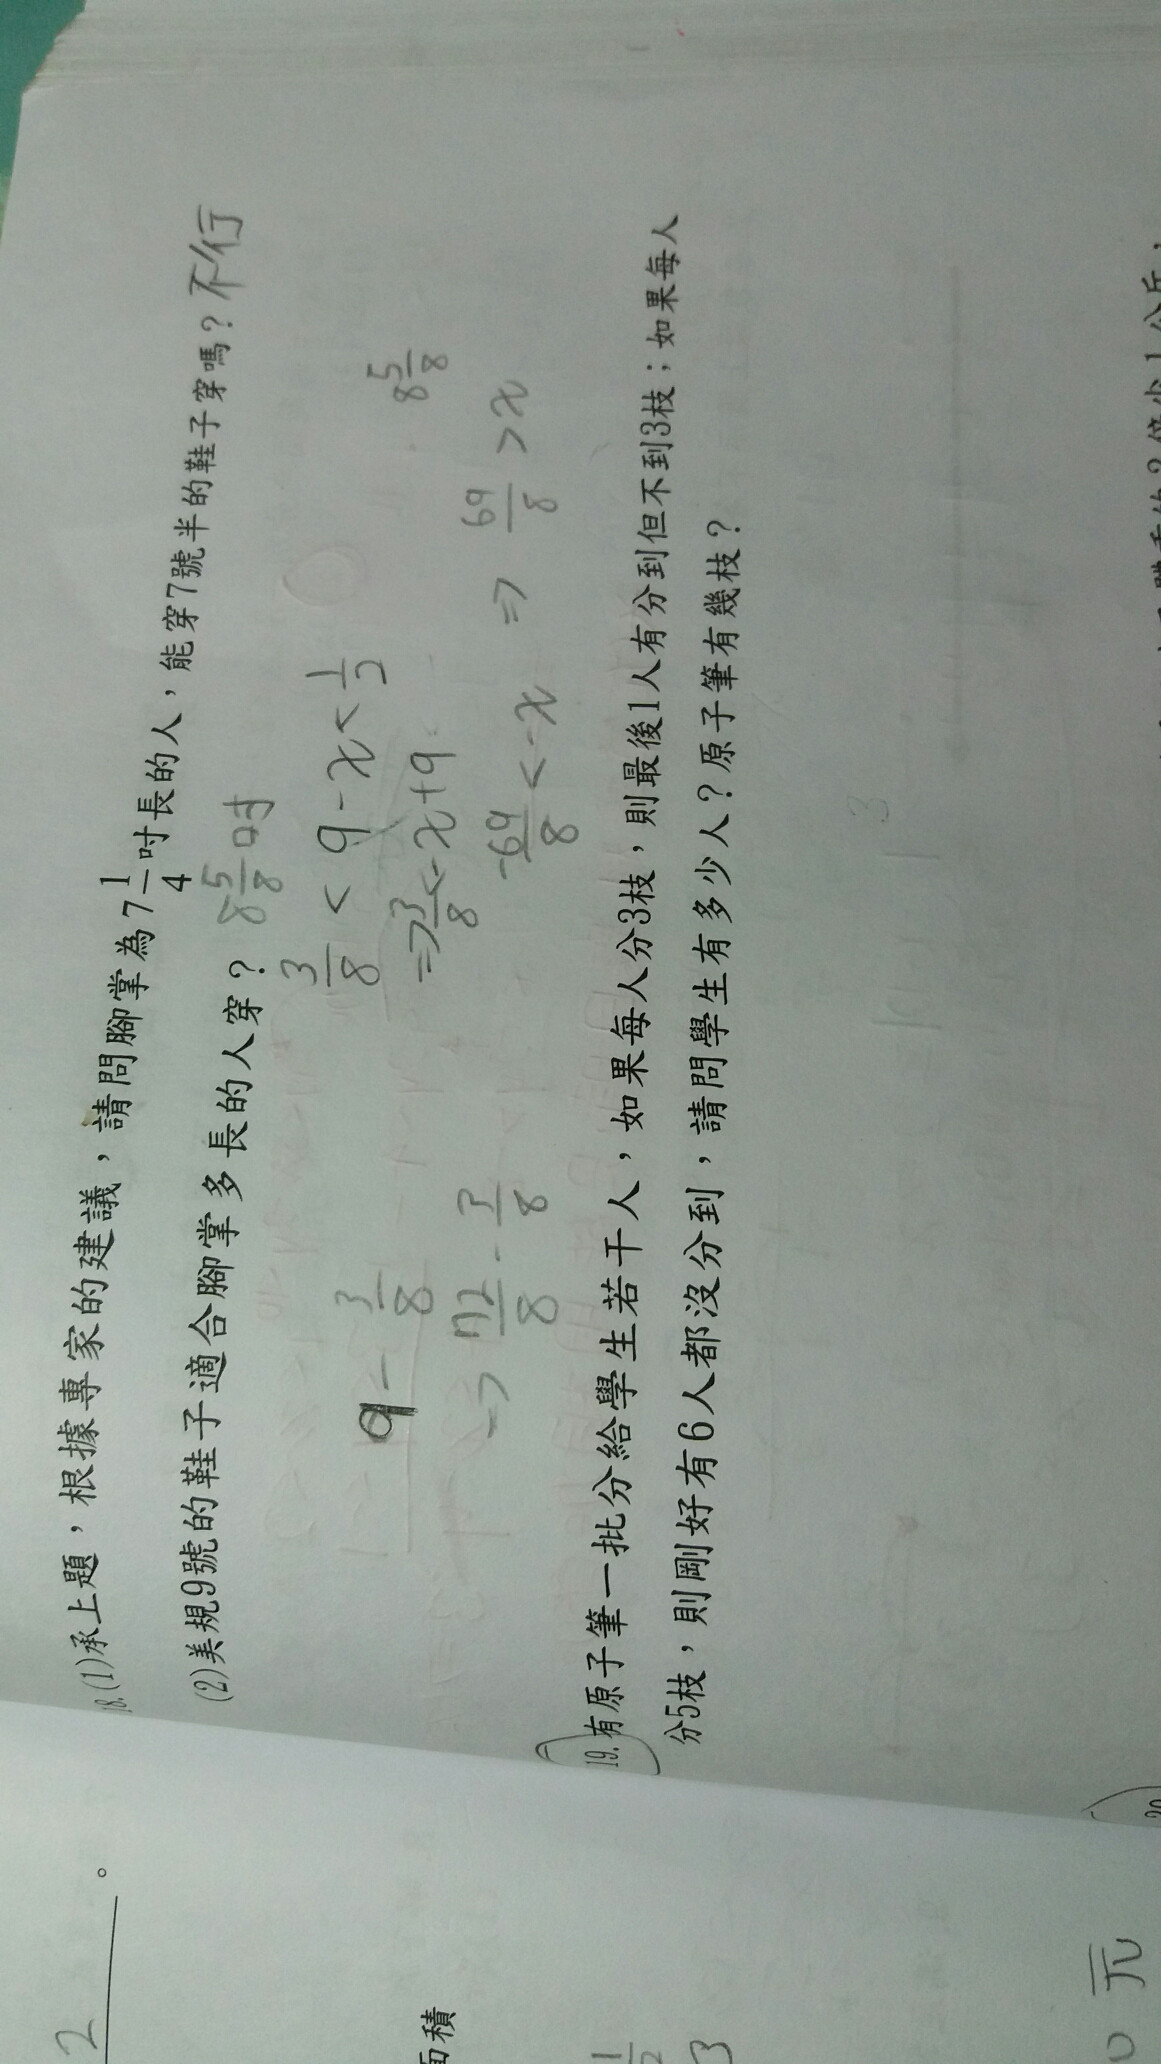 18.(1)承上題，根據專家的建議，請問腳掌為7 1/4 吋長的人，能穿7號半的鞋子穿嗎？不行
(2)美規9號的鞋子適合腳掌多長的人穿？ 8 5/8 吋
3/8 < 9-x < 1/2
9 - 3/8
⇒ 3/8 < -x+9
8 5/8
⇒ 72/8 - 3/8
-69/8 < -x ⇒ 69/8 > x
19.有原子筆一批分給學生若干人，如果每人分3枝，則最後1人有分到但不到3枝；如果每人
分5枝，則剛好有6人都沒分到，請問學生有多少人？原子筆有幾枝？
20
2
。
面積
1/2
3
元